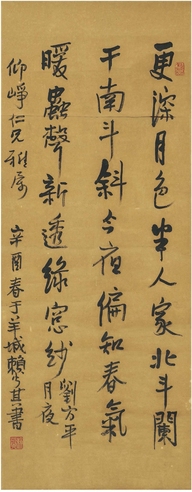 更深月色半人家北斗闌
干南斗斜今夜偏知春氣
暖蟲聲新透綠窓紗劉方平
月夜
仰崢仁兄雅屬 辛酉春于羊城賴少其書